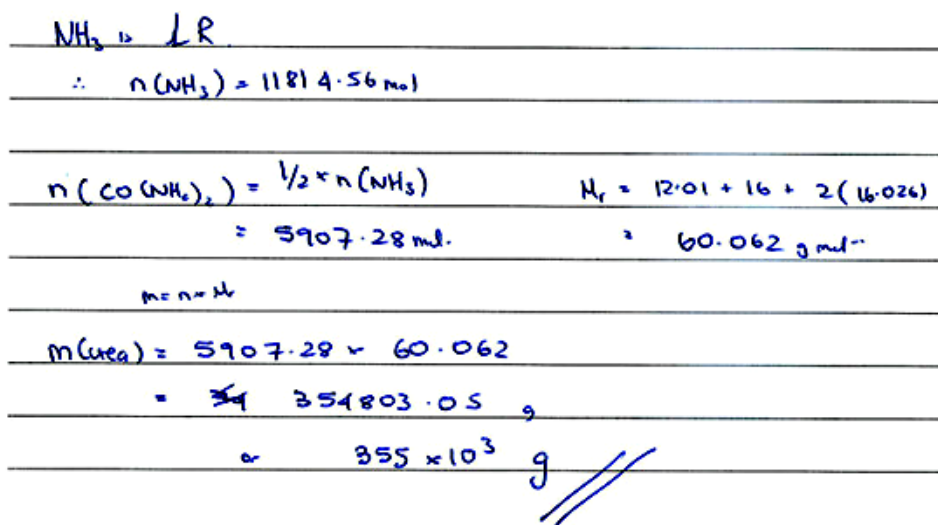 NH₃ is LR.
∴ n(NH₃) = 11814.56 mol
n(CO(NH₂)₂) = 1/2 × n(NH₃) Mᵣ = 12.01 + 16 + 2(16.026)
= 5907.28 mol. = 60.062 g mol⁻¹
m = n × Mᵣ
m(urea) = 5907.28 × 60.062
= 354803.05 g
or 355 × 10³ g